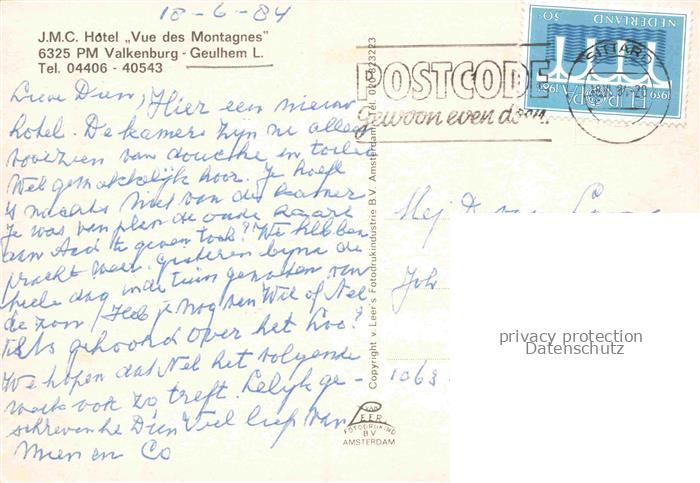 18-6-84
J.M.C. Hôtel „Vue des Montagnes"
6325 PM Valkenburg - Geulhem L.
Tel. 04406 - 40543
Lieve Dien, Hier een nieuw
hotel. De kamers zijn nu allen
voorzien van douche en toilet
Wel gemakkelijk hoor. Je hoeft
's nachts niet van de kamer
Je was van plan de oude kaart
aan Aad te geven toch? We hebben
pracht weer. gisteren bijna de
hele dag in de tuin genoten van
de zon, Heb je nog van Wil of Nel
iets gehoord over het Loo?
We hopen dat Nel het volgende
week ook zo treft. Lelijk ge-
schreven hè Dien Veel liefs van
Mien en Co
Copyright v. Leer's Fotodrukindustrie B.V. Amsterdam, Tel. 020-823223
VAN
LEER
FOTODRUKIND
B.V
AMSTERDAM
POSTCODE
gewoon even doen
SITTARD
NEDERLAND
50 c
EUROPA
1959 1984
Mej D. van
Joh
1063
privacy protection
Datenschutz